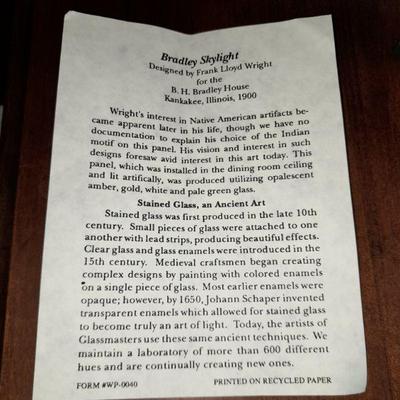 Bradley Skylight
Designed by Frank Lloyd Wright
for the
B. H. Bradley House
Kankakee, Illinois, 1900
Wright's interest in Native American artifacts be-
came apparent later in his life, though we have no
documentation to explain his choice of the Indian
motif on this panel. His vision and interest in such
designs foresaw avid interest in this art today. This
panel, which was installed in the dining room ceiling
and lit artifically, was produced utilizing opalescent
amber, gold, white and pale green glass.
Stained Glass, an Ancient Art
Stained glass was first produced in the late 10th
century. Small pieces of glass were attached to one
another with lead strips, producing beautiful effects.
Clear glass and glass enamels were introduced in the
15th century. Medieval craftsmen began creating
complex designs by painting with colored enamels
on a single piece of glass. Most earlier enamels were
opaque; however, by 1650, Johann Schaper invented
transparent enamels which allowed for stained glass
to become truly an art of light. Today, the artists of
Glassmasters use these same ancient techniques. We
maintain a laboratory of more than 600 different
hues and are continually creating new ones.
FORM #WP-0040 PRINTED ON RECYCLED PAPER